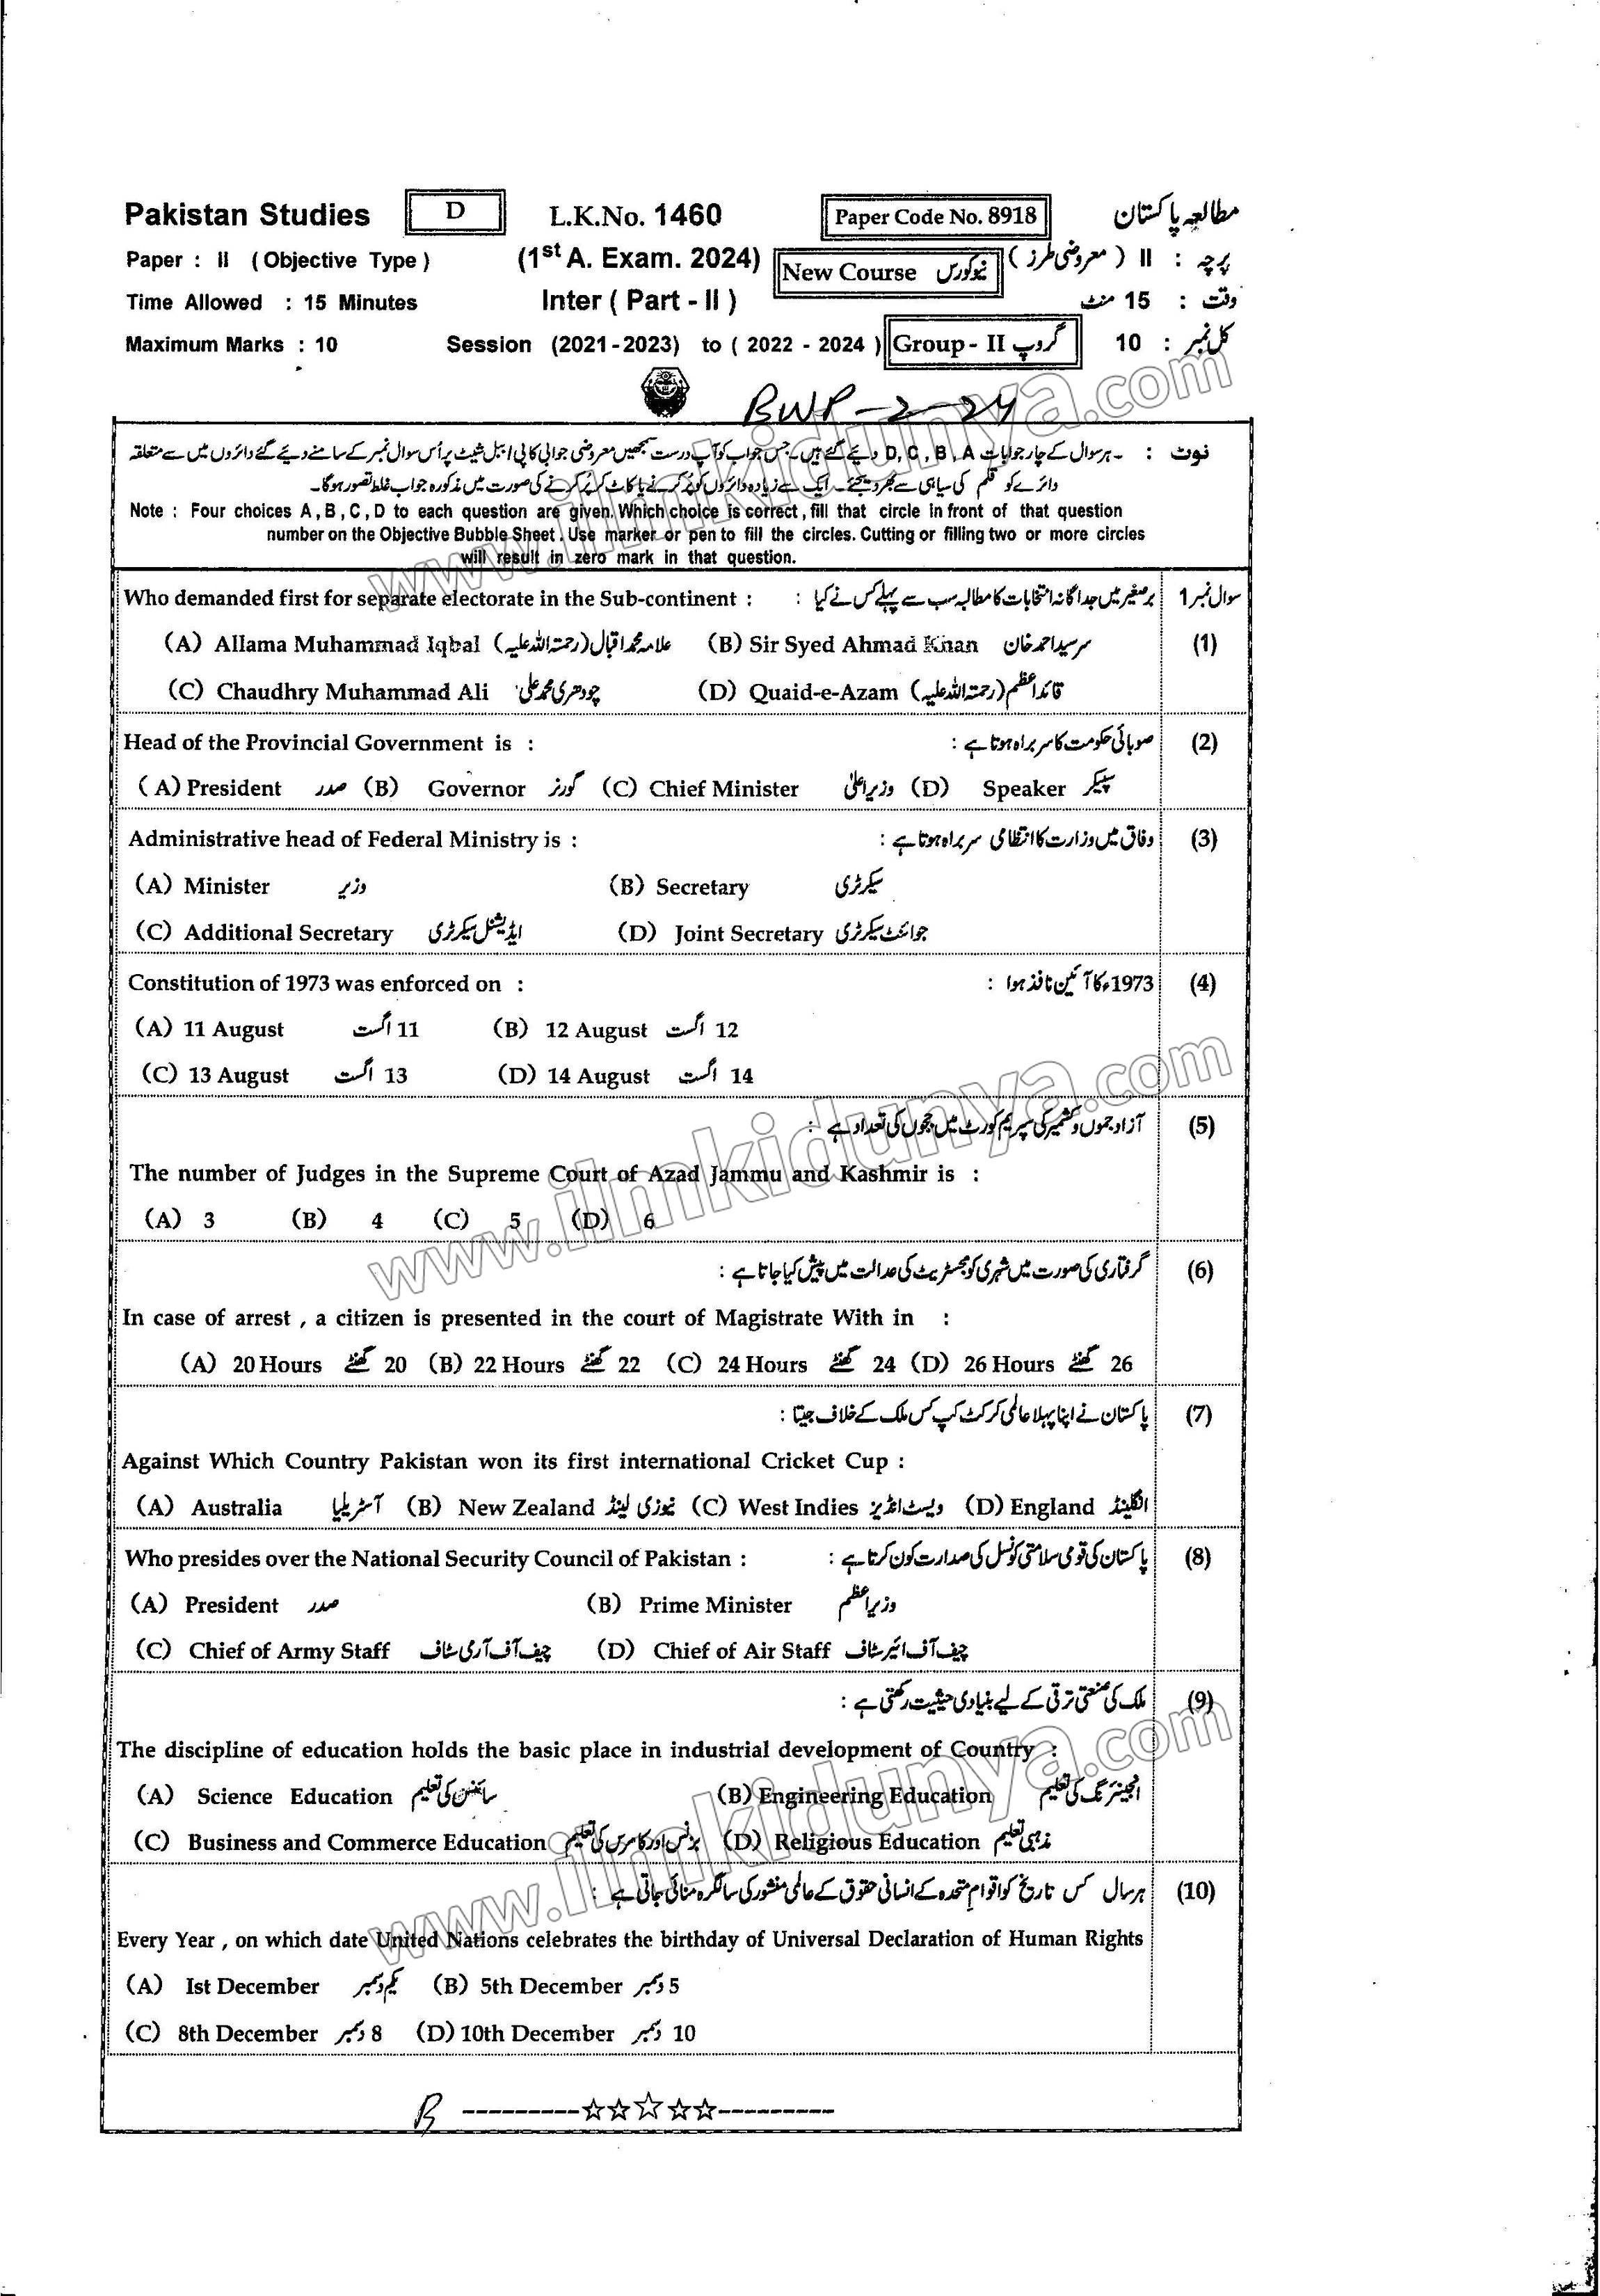 Pakistan Studies D L.K.No. 1460 Paper Code No. 8918 مطالعہ پاکستان
Paper : II ( Objective Type ) (1st A. Exam. 2024) New Course نیو کورس پرچہ : II ( معروضی طرز )
Time Allowed : 15 Minutes Inter ( Part - II ) وقت : 15 منٹ
Maximum Marks : 10 Session (2021-2023) to ( 2022 - 2024 ) Group - II گروپ کل نمبر : 10
BWP-2-24
نوٹ : ۔ ہر سوال کے چار جوابات D, C, B, A دیئے گئے ہیں۔ جس جواب کو آپ درست سمجھیں معروضی جوابی کاپی / ببل شیٹ پر اُس سوال نمبر کے سامنے دیئے گئے دائروں میں سے متعلقہ
دائرے کو قلم کی سیاہی سے بھر دیجئے۔ ایک سے زیادہ دائروں کو پُر کرنے یا کاٹ کر پُر کرنے کی صورت میں مذکورہ جواب غلط تصور ہوگا۔
Note : Four choices A, B, C, D to each question are given. Which choice is correct, fill that circle in front of that question
number on the Objective Bubble Sheet. Use marker or pen to fill the circles. Cutting or filling two or more circles
will result in zero mark in that question.
Who demanded first for separate electorate in the Sub-continent : برصغیر میں جداگانہ انتخابات کا مطالبہ سب سے پہلے کس نے کیا : سوال نمبر 1
(A) Allama Muhammad Iqbal علامہ محمد اقبال (رحمتہ اللہ علیہ) (B) Sir Syed Ahmad Khan سرسید احمد خان (1)
(C) Chaudhry Muhammad Ali چودھری محمد علی (D) Quaid-e-Azam قائد اعظم (رحمتہ اللہ علیہ)
Head of the Provincial Government is : صوبائی حکومت کا سربراہ ہوتا ہے : (2)
(A) President صدر (B) Governor گورنر (C) Chief Minister وزیر اعلیٰ (D) Speaker سپیکر
Administrative head of Federal Ministry is : وفاق میں وزارت کا انتظامی سربراہ ہوتا ہے : (3)
(A) Minister وزیر (B) Secretary سیکرٹری
(C) Additional Secretary ایڈیشنل سیکرٹری (D) Joint Secretary جوائنٹ سیکرٹری
Constitution of 1973 was enforced on : 1973ء کا آئین نافذ ہوا : (4)
(A) 11 August 11 اگست (B) 12 August 12 اگست
(C) 13 August 13 اگست (D) 14 August 14 اگست
آزاد جموں و کشمیر کی سپریم کورٹ میں ججوں کی تعداد ہے : (5)
The number of Judges in the Supreme Court of Azad Jammu and Kashmir is :
(A) 3 (B) 4 (C) 5 (D) 6
گرفتاری کی صورت میں شہری کو مجسٹریٹ کی عدالت میں پیش کیا جاتا ہے : (6)
In case of arrest , a citizen is presented in the court of Magistrate With in :
(A) 20 Hours 20 گھنٹے (B) 22 Hours 22 گھنٹے (C) 24 Hours 24 گھنٹے (D) 26 Hours 26 گھنٹے
پاکستان نے اپنا پہلا عالمی کرکٹ کپ کس ملک کے خلاف جیتا : (7)
Against Which Country Pakistan won its first international Cricket Cup :
(A) Australia آسٹریلیا (B) New Zealand نیوزی لینڈ (C) West Indies ویسٹ انڈیز (D) England انگلینڈ
Who presides over the National Security Council of Pakistan : پاکستان کی قومی سلامتی کونسل کی صدارت کون کرتا ہے : (8)
(A) President صدر (B) Prime Minister وزیر اعظم
(C) Chief of Army Staff چیف آف آرمی سٹاف (D) Chief of Air Staff چیف آف ائیر سٹاف
ملک کی صنعتی ترقی کے لیے بنیادی حیثیت رکھتی ہے : (9)
The discipline of education holds the basic place in industrial development of Country :
(A) Science Education سائنس کی تعلیم (B) Engineering Education انجینئرنگ کی تعلیم
(C) Business and Commerce Education بزنس اور کامرس کی تعلیم (D) Religious Education مذہبی تعلیم
ہر سال کس تاریخ کو اقوام متحدہ کے انسانی حقوق کے عالمی منشور کی سالگرہ منائی جاتی ہے : (10)
Every Year , on which date United Nations celebrates the birthday of Universal Declaration of Human Rights
(A) Ist December یکم دسمبر (B) 5th December 5 دسمبر
(C) 8th December 8 دسمبر (D) 10th December 10 دسمبر
B ---------☆☆☆☆☆---------
www.ilmkidunya.com
www.ilmkidunya.com
www.ilmkidunya.com